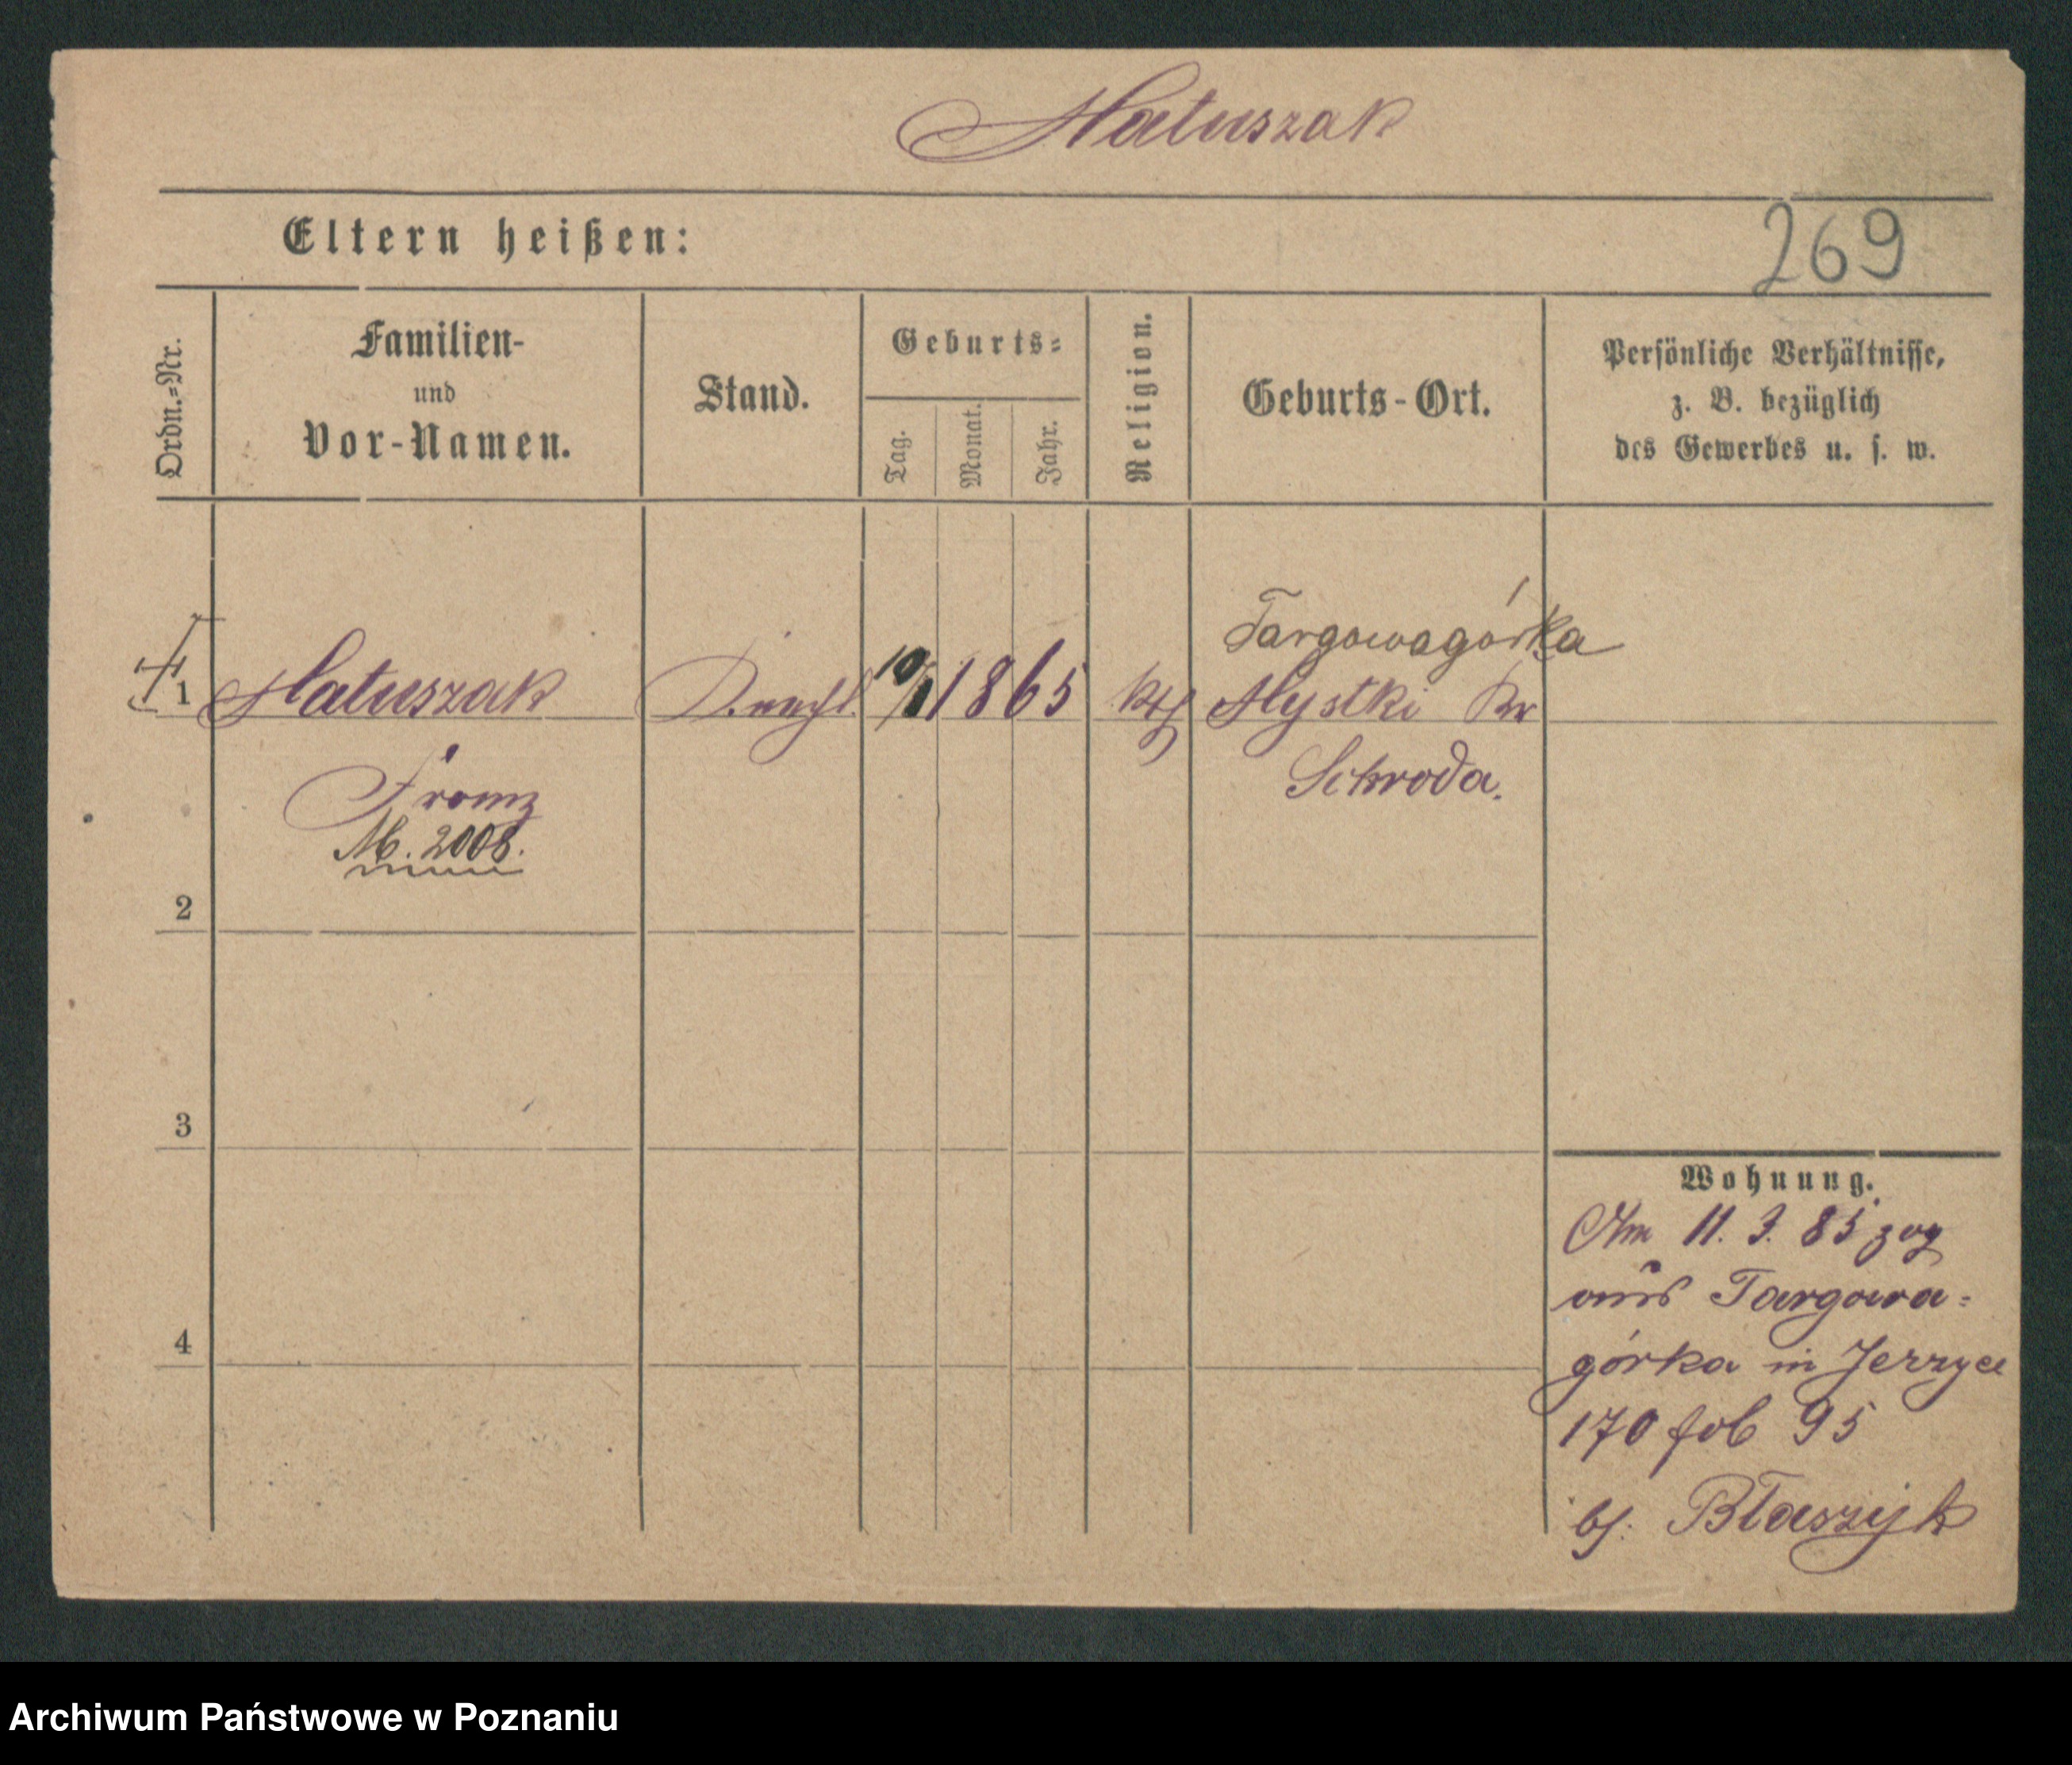 Matuszak
Eltern heißen:
269
Ordn.-Nr.
Familien-
und
Vor-Namen.
Stand.
Geburts-
Tag.
Monat.
Jahr.
Religion.
Geburts-Ort.
Persönliche Verhältnisse,
z. B. bezüglich
des Gewerbes u. s. w.
Targowagórka
1 Matuszak 1865 kth Mystki Kr
Schroda.
Franz
M. 2008.
2
3
4
Wohnung.
Am 11. 3. 85 zog
aus Targowa-
górka in Jerzyce
170 fol 95
bs: Błaszyk
Archiwum Państwowe w Poznaniu